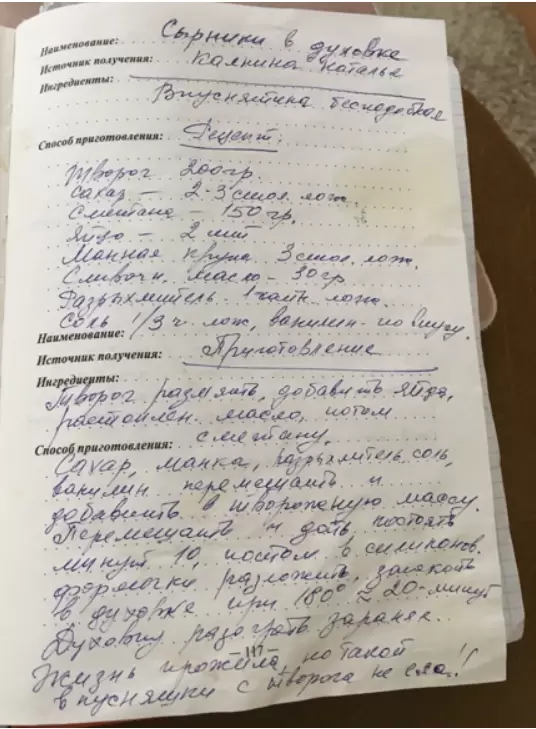 Наименование: Сырники в духовке
Источник получения: Калнина Наталья
Ингредиенты:
Вкуснятина бесподобная
Способ приготовления: Рецепт.
Творог 200 гр.
Сахар – 2-3 стол. лож.
Сметана – 150 гр.
Яйцо – 2 шт
Манная крупа 3 стол. лож.
Сливочн. масло – 30 гр.
Разрыхлитель 1 чайн. лож.
Соль 1/3 ч. лож, ванилин по вкусу.
Наименование:
Источник получения: Приготовление
Ингредиенты:
Творог размять, добавить яйца,
растоплен. масло, потом
Способ приготовления: сметану.
Сахар, манка, разрыхлитель, соль,
ванилин перемешать и
добавить в творожную массу.
Перемешать и дать постоять
минут 10, потом в силиконов.
формочки разложить, запекать
в духовке при 180° ≈ 20-минут
Духовку разогреть заранее.
-117-
Жизнь прожила, но такой
вкусняшки с творога не ела!!